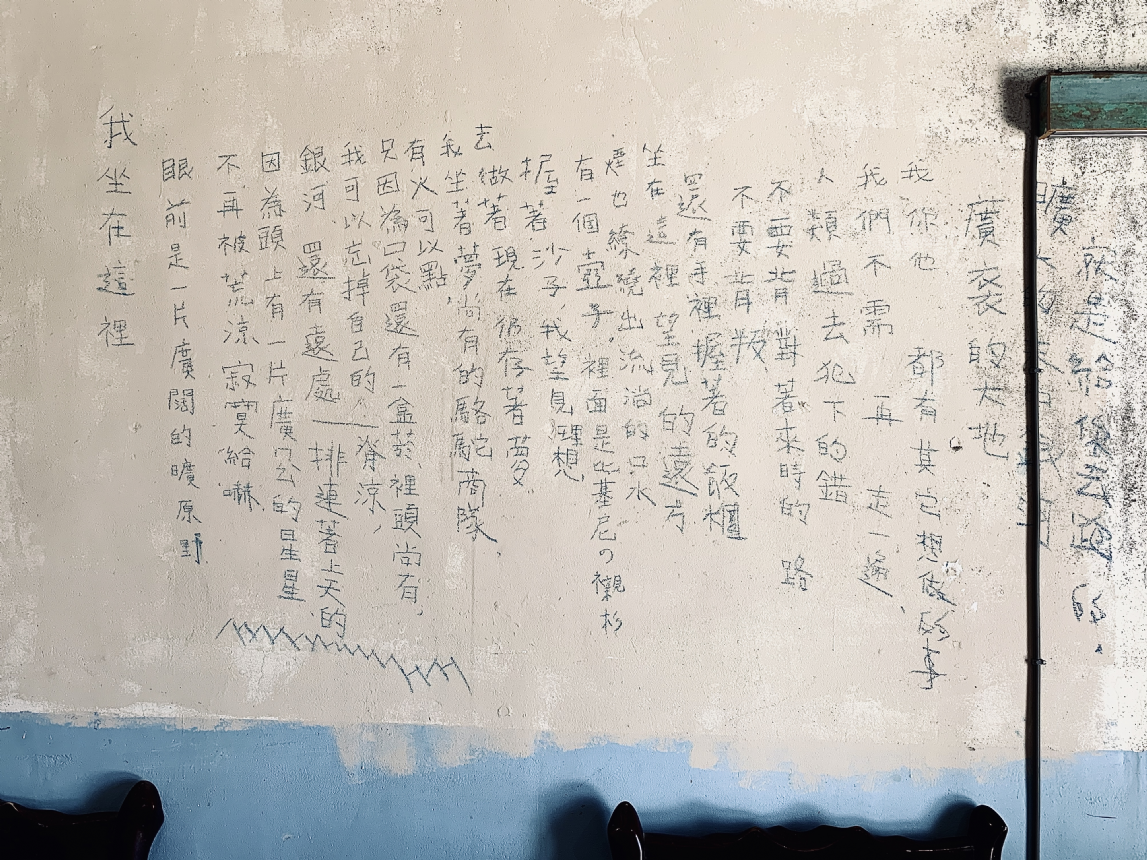 我坐在這裡
眼前是一片廣闊的曠原野
不再被荒涼寂寞給嚇
因為頭上有一片廣公的星星
銀河，還有遠處一排連著上天的
我可以忘掉自己的脊涼，
只因為口袋還有一盒菸，裡頭尚有，
有火可以點，
我坐著夢尚有的駱駝商隊，
去做著現在仍存著夢，
握著沙子，我望見理想，
有一個壺子，裡面是比基尼の襯衫
也繚繞出流淌的口水
坐在這裡望見的遠方
還有手裡握著的飯櫃
不要背叛
不要背對著來時的路
人類過去犯下的錯
我們不需再走一遍、
我你他都有其它想做的事
廣袤的大地
曠
就是給後去過的．